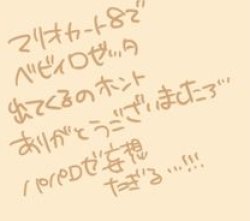 マリオカート8で
ベビィロゼッタ
出てくるのホント
ありがとうございましたァ…
パパロゼ妄想
たぎる…!!!